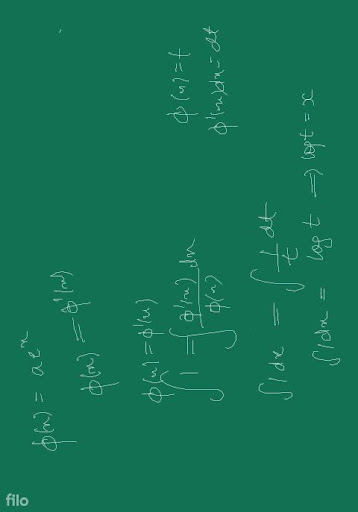 ϕ(x) = ae^x
ϕ(x) = ϕ'(x)
ϕ(x) = ϕ'(x)
∫ 1 = ∫ ϕ'(x)/ϕ(x) dx
ϕ(x) = t
ϕ'(x)dx = dt
∫ 1 dx = ∫ 1/t dt
∫ 1 dx = log t ⇒ log t = x
filo